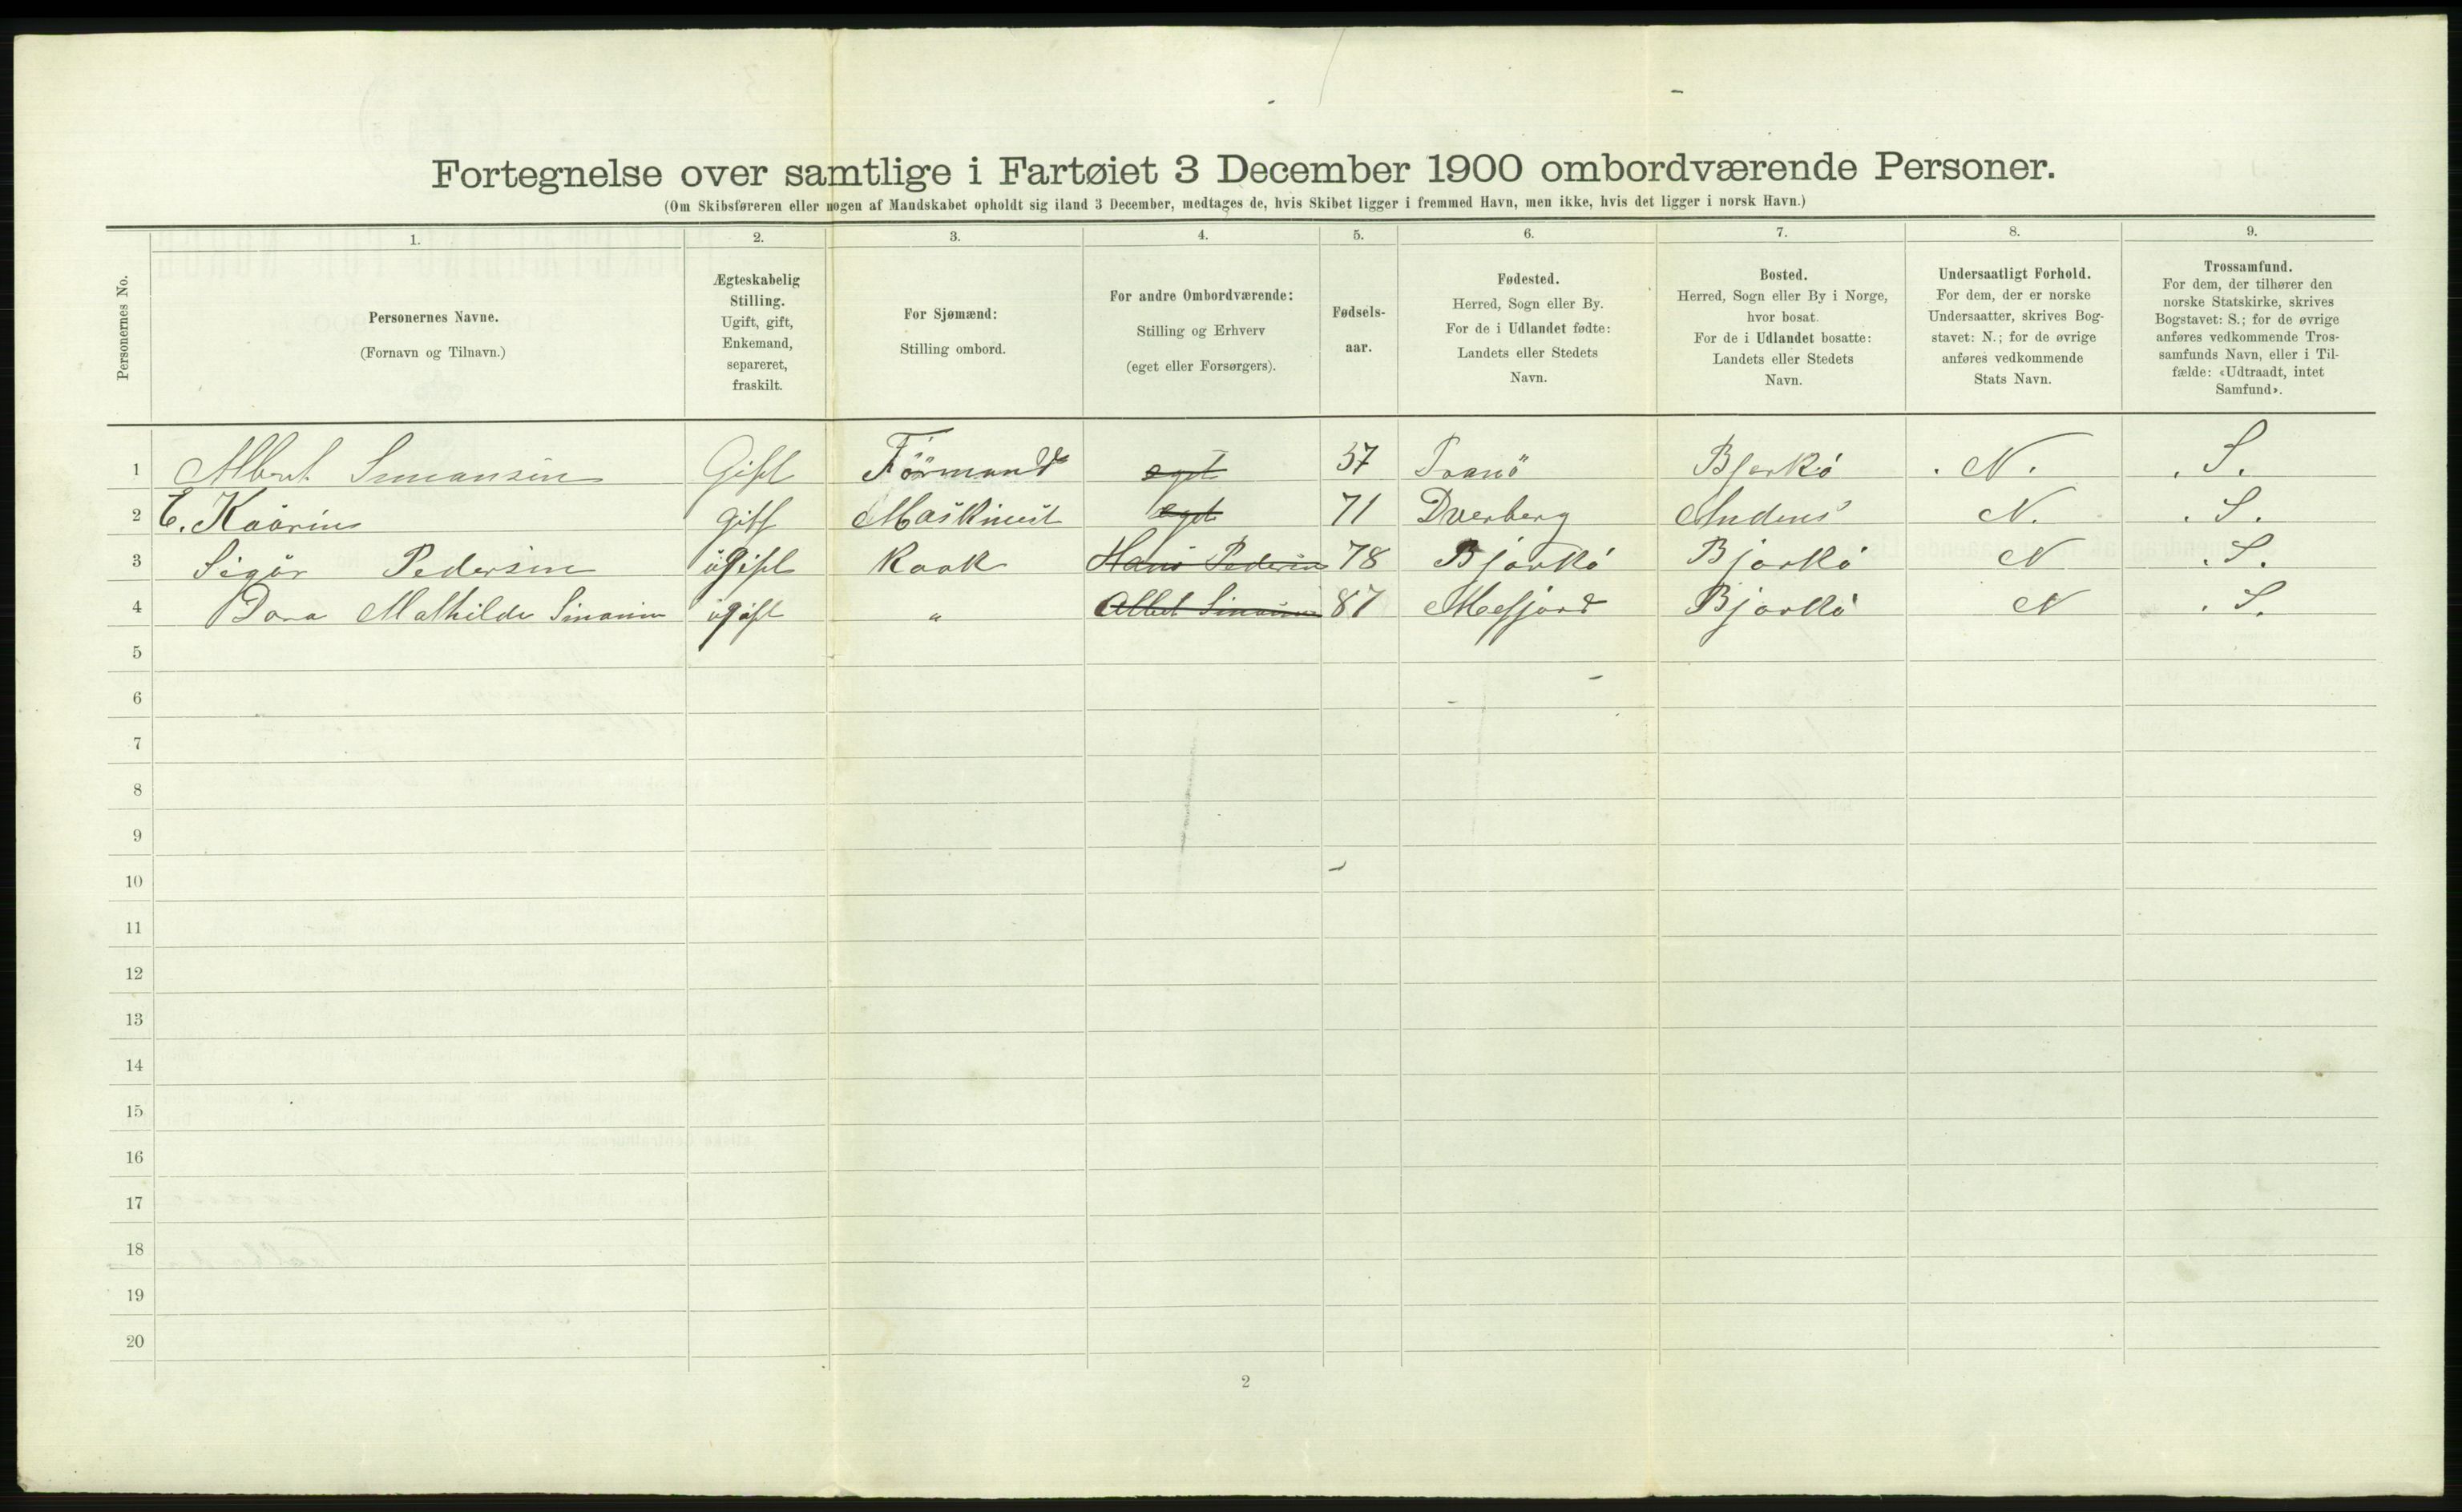 Fortegnelse over samtlige i Fartøiet 3 December 1900 ombordværende Personer.
(Om Skibsføreren eller nogen af Mandskabet opholdt sig iland 3 December, medtages de, hvis Skibet ligger i fremmed Havn, men ikke, hvis det ligger i norsk Havn.)
Personernes No.
1.
Personernes Navne.
(Fornavn og Tilnavn.)
2.
Ægteskabelig
Stilling.
Ugift, gift,
Enkemand,
separeret,
fraskilt.
3.
For Sjømænd:
Stilling ombord.
4.
For andre Ombordværende:
Stilling og Erhverv
(eget eller Forsørgers).
5.
Fødsels-
aar.
6.
Fødested.
Herred, Sogn eller By.
For de i Udlandet fødte:
Landets eller Stedets
Navn.
7.
Bosted.
Herred, Sogn eller By i Norge,
hvor bosat.
For de i Udlandet bosatte:
Landets eller Stedets
Navn.
8.
Undersaatligt Forhold.
For dem, der er norske
Undersaatter, skrives Bog-
stavet: N.; for de øvrige
anføres vedkommende
Stats Navn.
9.
Trossamfund.
For dem, der tilhører den
norske Statskirke, skrives
Bogstavet: S.; for de øvrige
anføres vedkommende Tros-
samfunds Navn, eller i Til-
fælde: «Udtraadt, intet
Samfund».
1 Albert Simansen Gift Formand eget 57 Tranö Bjarkö N. S.
2 E. Kaarin gift Maskinist eget 71 Dverberg Andenes N. S.
3 Sigur Pedersen ugift Kook Hans Pedersen 78 Bjarkö Bjarkö N S.
4 Dora Mathilde Simansen ugift " Albert Simansen 87 Mefjord Bjarkö N S.
5
6
7
8
9
10
11
12
13
14
15
16
17
18
19
20
2